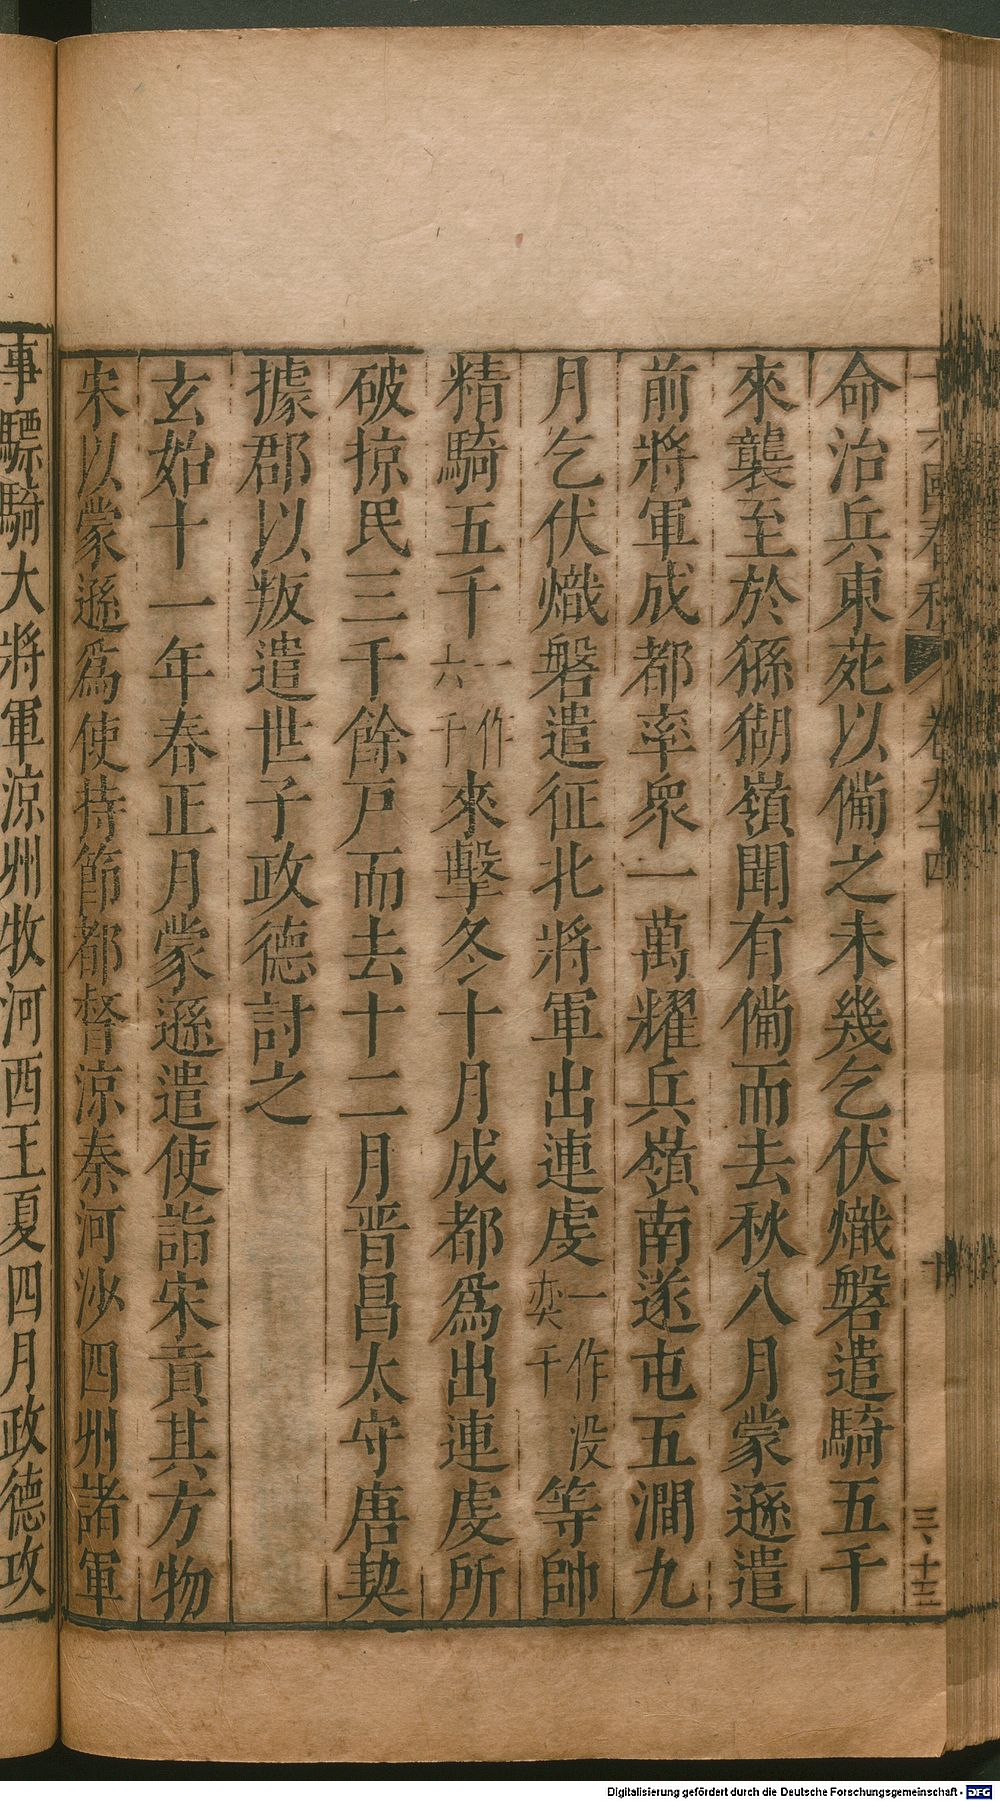 十六國春秋 卷九十四 十 三、十三
命治兵東苑以備之未幾乞伏熾磐遣騎五千
來襲至於㺊猢嶺聞有備而去秋八月蒙遜遣
前將軍成都率衆一萬耀兵嶺南遂屯五澗九
月乞伏熾磐遣征北將軍出連虔一作没奕干等帥
精騎五千一作六千來擊冬十月成都爲出連虔所
破掠民三千餘戸而去十二月晋昌太守唐契
據郡以叛遣世子政德討之
玄始十一年春正月蒙遜遣使詣宋貢其方物
宋以蒙遜爲使持節都督涼秦河沙四州諸軍
事驃騎大將軍涼州牧河西王夏四月政德攻
Digitalisierung gefördert durch die Deutsche Forschungsgemeinschaft - DFG